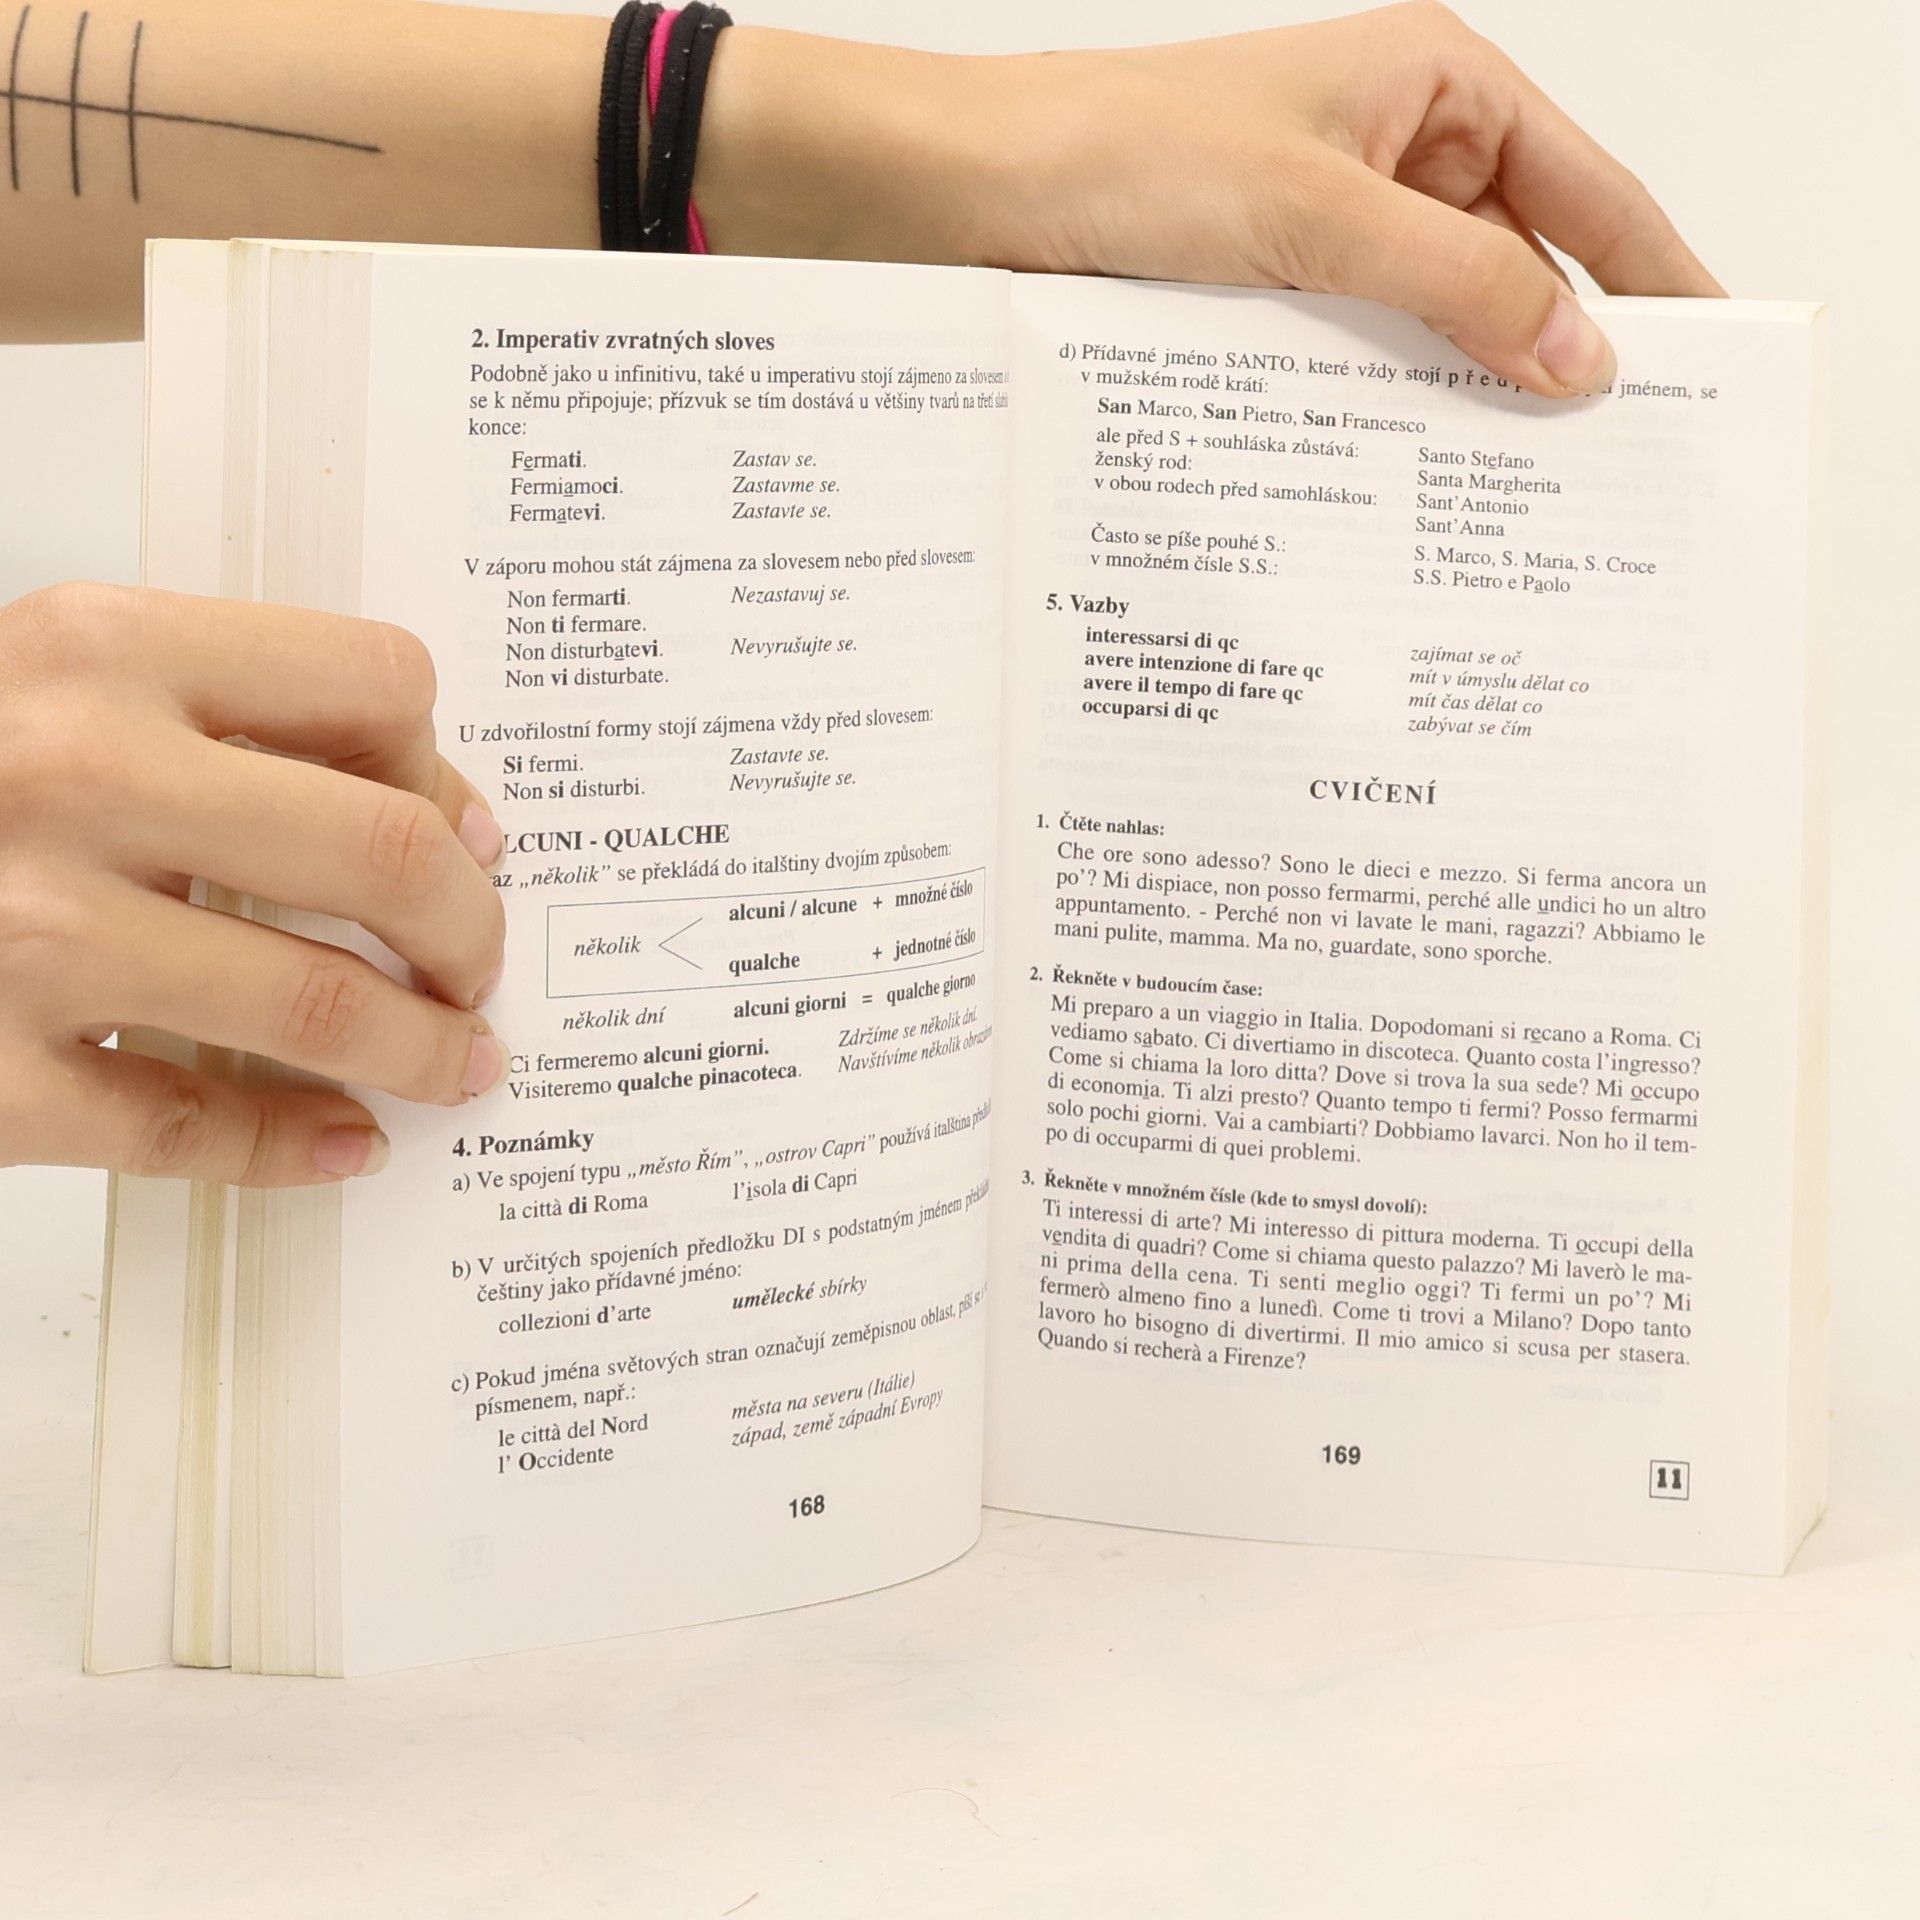 2. Imperativ zvratných sloves
Podobně jako u infinitivu, také u imperativu stojí zájmeno za slovesem
se k němu připojuje; přízvuk se tím dostává u většiny tvarů na třetí
konce:
Fermati. Zastav se.
Fermiamoci. Zastavme se.
Fermatevi. Zastavte se.
V záporu mohou stát zájmena za slovesem nebo před slovesem:
Non fermarti. Nezastavuj se.
Non ti fermare.
Non disturbatevi. Nevyrušujte se.
Non vi disturbate.
U zdvořilostní formy stojí zájmena vždy před slovesem:
Si fermi. Zastavte se.
Non si disturbi. Nevyrušujte se.
LCUNI - QUALCHE
az „několik” se překládá do italštiny dvojím způsobem:
alcuni / alcune + množné číslo
několik
qualche + jednotné číslo
několik dní alcuni giorni = qualche giorno
Ci fermeremo alcuni giorni. Zdržíme se několik dní.
Visiteremo qualche pinacoteca. Navštívíme několik
4. Poznámky
a) Ve spojení typu „město Řím”, „ostrov Capri” používá italština
la città di Roma l’isola di Capri
b) V určitých spojeních předložku DI s podstatným jménem
češtiny jako přídavné jméno:
collezioni d’arte umělecké sbírky
c) Pokud jména světových stran označují zeměpisnou oblast, píší se
písmenem, např.:
le città del Nord města na severu (Itálie)
l’ Occidente západ, země západní Evropy
168
d) Přídavné jméno SANTO, které vždy stojí jménem, se
v mužském rodě krátí:
San Marco, San Pietro, San Francesco
ale před S + souhláska zůstává: Santo Stefano
ženský rod: Santa Margherita
v obou rodech před samohláskou: Sant’Antonio
Sant’Anna
Často se píše pouhé S.: S. Marco, S. Maria, S. Croce
v množném čísle S.S.: S.S. Pietro e Paolo
5. Vazby
interessarsi di qc zajímat se oč
avere intenzione di fare qc mít v úmyslu dělat co
avere il tempo di fare qc mít čas dělat co
occuparsi di qc zabývat se čím
CVIČENÍ
1. Čtěte nahlas:
Che ore sono adesso? Sono le dieci e mezzo. Si ferma ancora un
po’? Mi dispiace, non posso fermarmi, perché alle undici ho un altro
appuntamento. - Perché non vi lavate le mani, ragazzi? Abbiamo le
mani pulite, mamma. Ma no, guardate, sono sporche.
2. Řekněte v budoucím čase:
Mi preparo a un viaggio in Italia. Dopodomani si recano a Roma. Ci
vediamo sabato. Ci divertiamo in discoteca. Quanto costa l’ingresso?
Come si chiama la loro ditta? Dove si trova la sua sede? Mi occupo
di economia. Ti alzi presto? Quanto tempo ti fermi? Posso fermarmi
solo pochi giorni. Vai a cambiarti? Dobbiamo lavarci. Non ho il tem-
po di occuparmi di quei problemi.
3. Řekněte v množném čísle (kde to smysl dovolí):
Ti interessi di arte? Mi interesso di pittura moderna. Ti occupi della
vendita di quadri? Come si chiama questo palazzo? Mi laverò le ma-
ni prima della cena. Ti senti meglio oggi? Ti fermi un po’? Mi
fermerò almeno fino a lunedì. Come ti trovi a Milano? Dopo tanto
lavoro ho bisogno di divertirmi. Il mio amico si scusa per stasera.
Quando si recherà a Firenze?
169
11